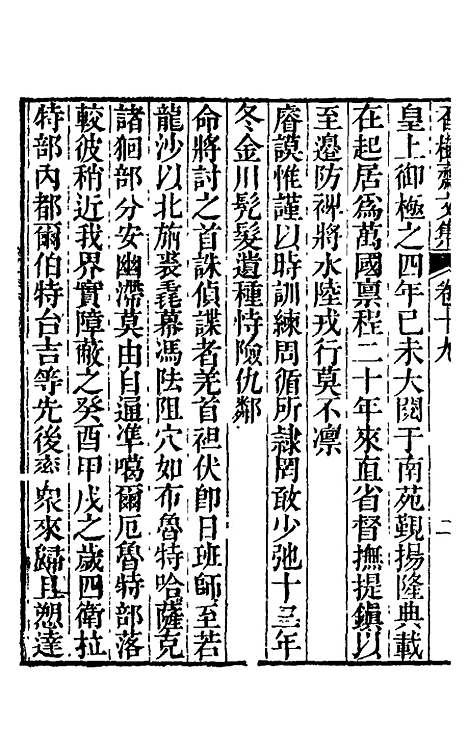 香樹齋文集 卷十九 二
皇上御極之四年己未大閱于南苑覲揚隆典載
在起居爲萬國禀程二十年來直省督撫提鎮以
至邊防裨將水陸戎行莫不凛
睿謨惟謹以時訓練周循所隸罔敢少弛十三年
冬金川髡髮遺種恃險仇鄰
命將討之首誅偵諜者羌酋袒伏卽日班師至若
龍沙以北旃裘毳幕馮阹阻穴如布魯特哈薩克
諸狪部分安幽滯莫由自通準噶爾厄魯特部落
較彼稍近我界實障蔽之癸酉甲戌之歲四衛拉
特部內都爾伯特台吉等先後率衆來歸且愬達